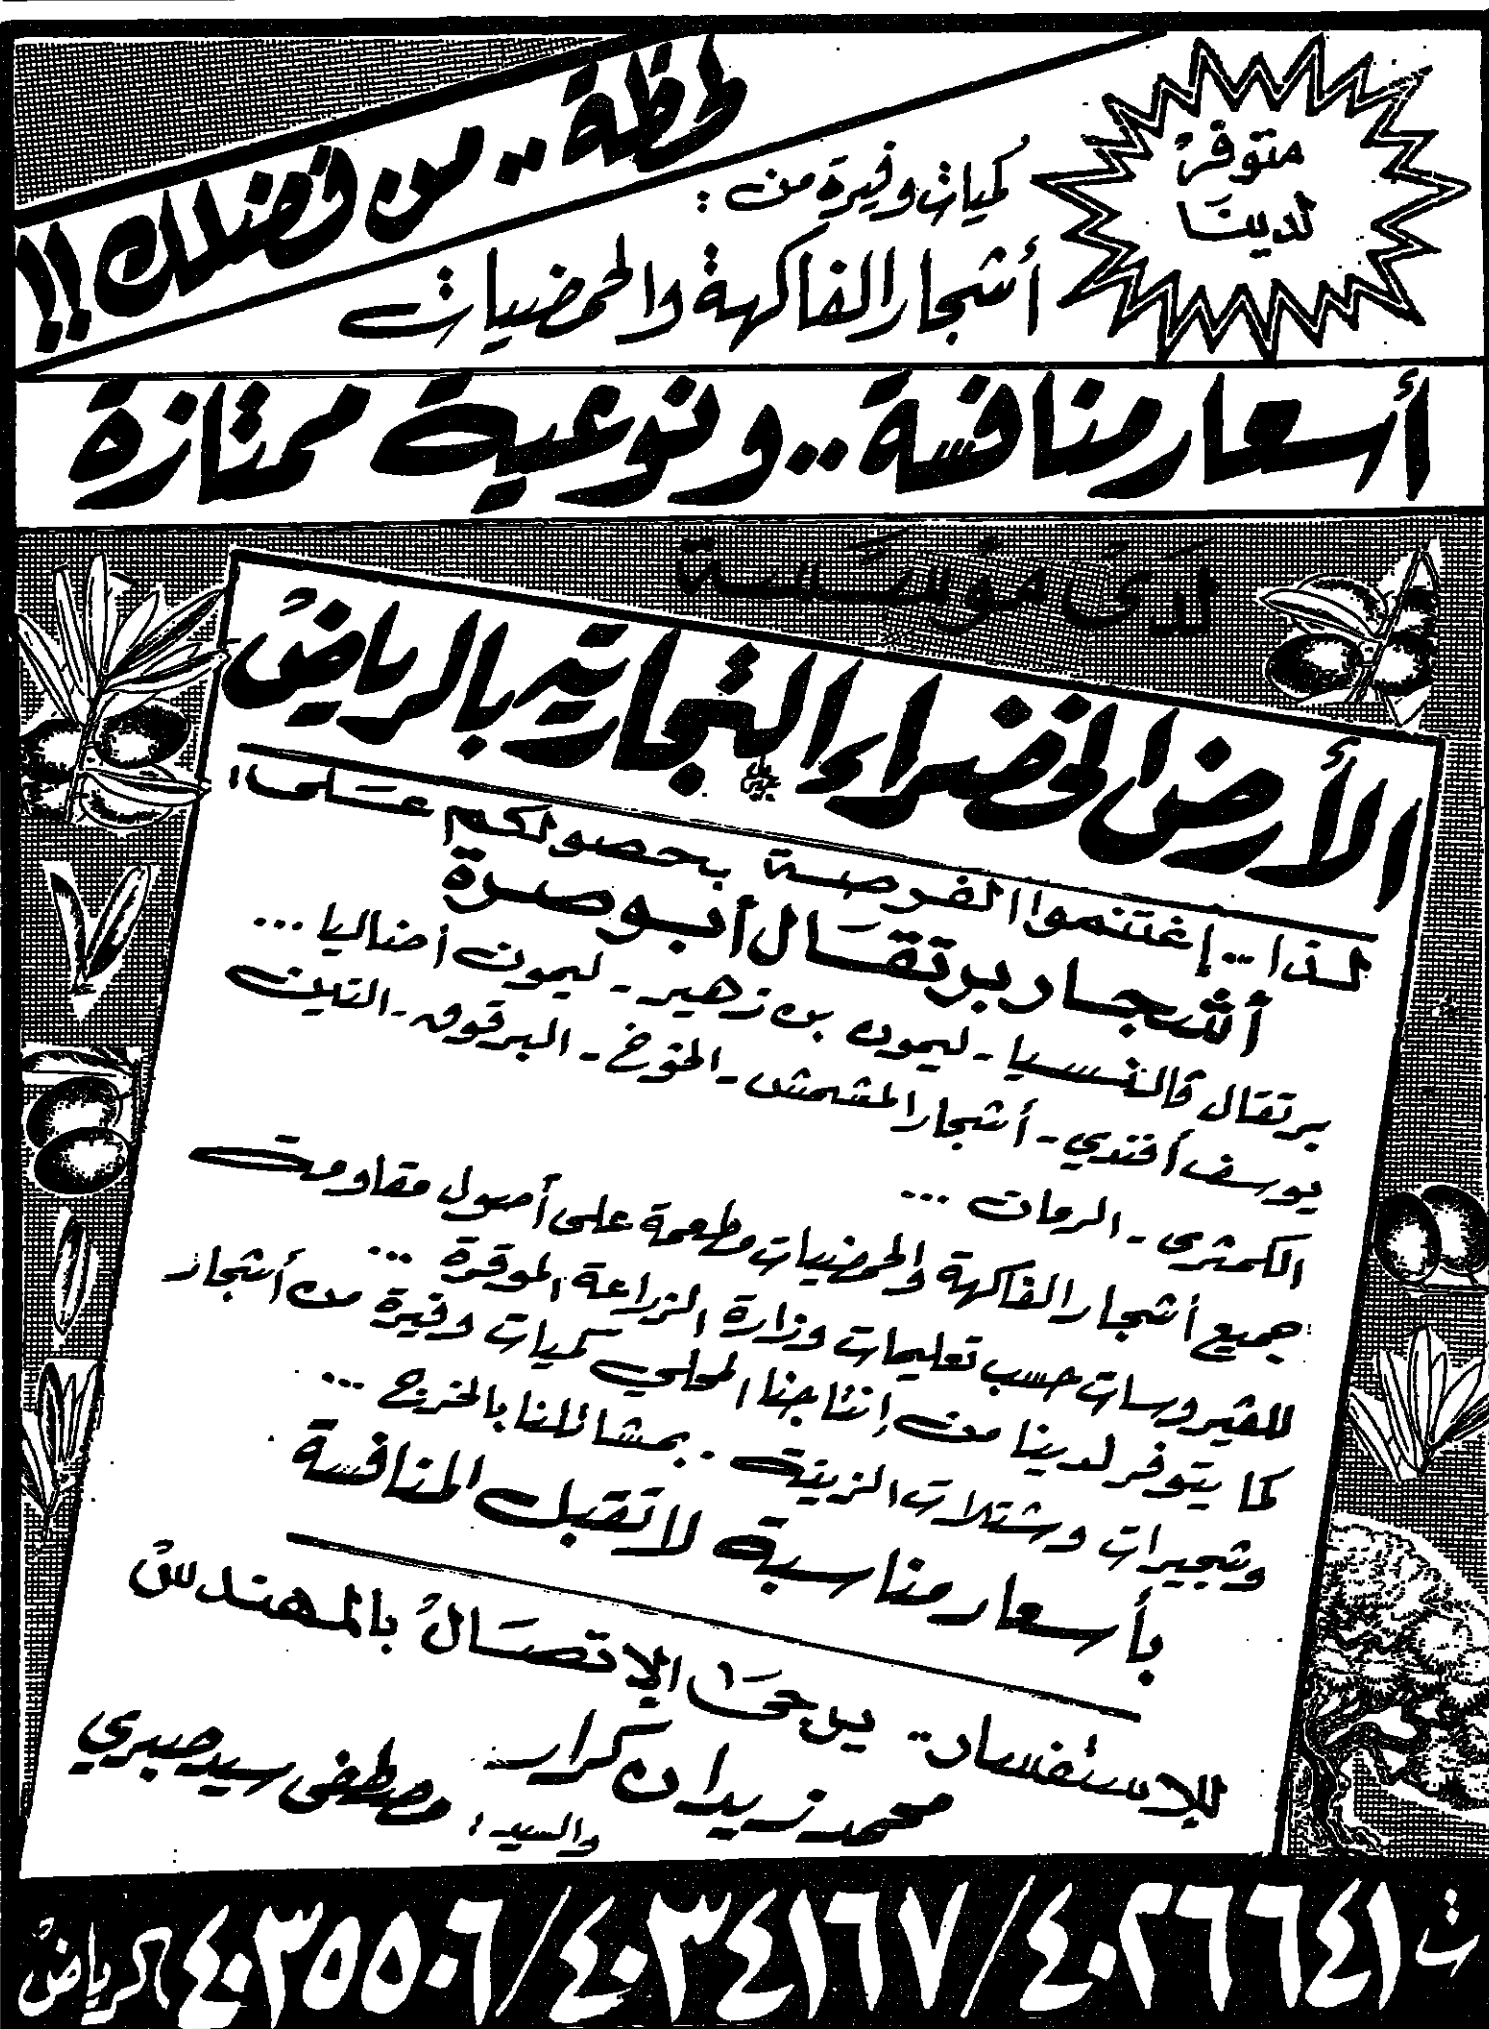 لحظة .. من فضلك !!
متوفر
لدينا
كميات وفيرة من :
أشجار الفاكهة والحمضيات
أسعار منافسة .. ونوعية ممتازة
لدى مؤسسة
الأرض الخضراء التجارية بالرياض
لذا .. إغتنموا الفرصة بحصولكم على :
أشجار برتقال أبو صرة
برتقال فالنسيا - ليمون بن زهير - ليمون أضاليا ...
يوسف أفندي - أشجار المشمش - الخوخ - البرقوق - التين
الكمثرى - الرمان ...
جميع أشجار الفاكهة والحمضيات مطعمة على أصول مقاومة
للفيروسات حسب تعليمات وزارة الزراعة الموقرة ...
كما يتوفر لدينا من إنتاجنا المحلي كميات وفيرة من أشجار
وشجيرات وشتلات الزينة . بمشاتلنا بالخرج ...
بأسعار مناسبة لا تقبل المنافسة
للإستفسار .. يرجى الإتصال بالمهندس
محمد زيدان كرار
والسيد : مصطفى سيد صبري
ت ٤٠٢٦٦٤١ / ٤٠٣٤١٦٧ / ٤٠٣٥٥٠٦ الرياض